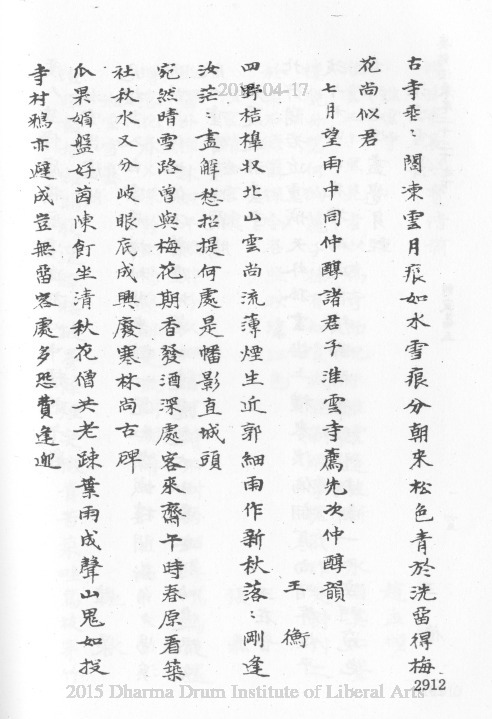 古寺乖：閣凍雲月痕如水雪痕分朝來松色青於洗畱得梅
花尚似君
七月望雨中同仲醇諸君子淮雲寺薦先次仲醇韻
王衡
四野桔橰収北山雲尚流薄煙生近郭細雨作新秋落：剛逢
汝茫：盡解愁招提何處是幡影直城頭
宛然晴雪路曽與梅花期香發酒深處客來齋午時春原看築
社秋水又分岐眼底成興廢寒林尚古碑
瓜果媚盤好茵陳飣坐清秋花僧共老疎葉雨成聲山鬼如投
寺村鴉亦遶成豈無畱客處多恐費逢迎
2015-04-17
2015 Dharma Drum Institute of Liberal Arts
2912